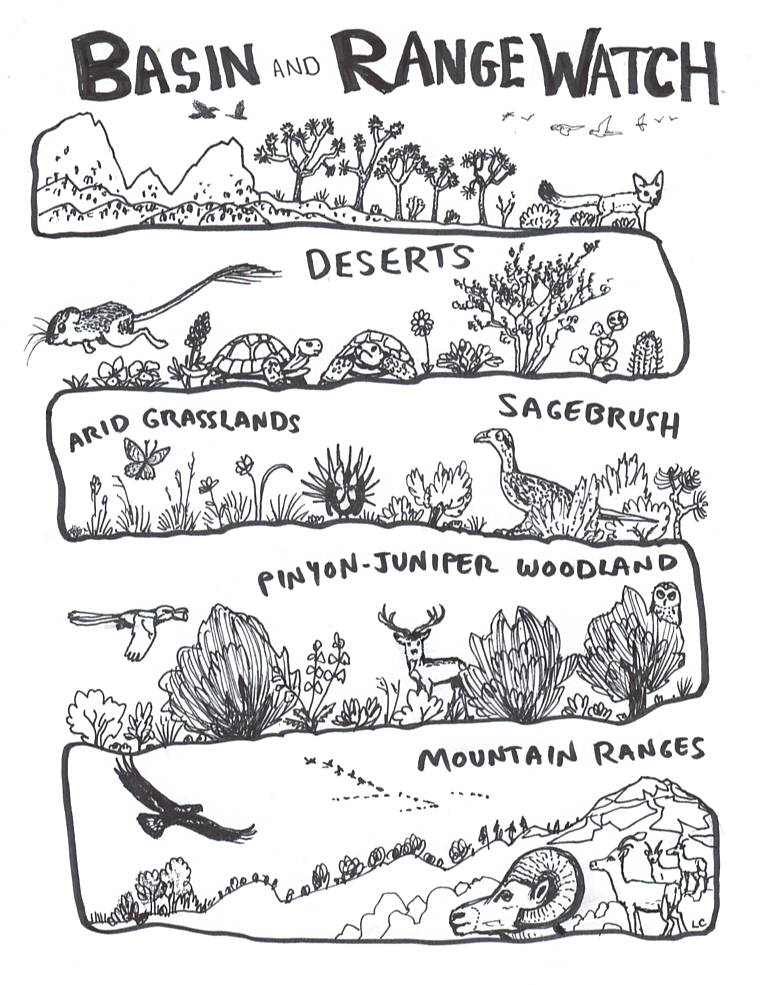 BASIN AND RANGE WATCH
DESERTS
ARID GRASSLANDS
SAGEBRUSH
PINYON-JUNIPER WOODLAND
MOUNTAIN RANGES
LC